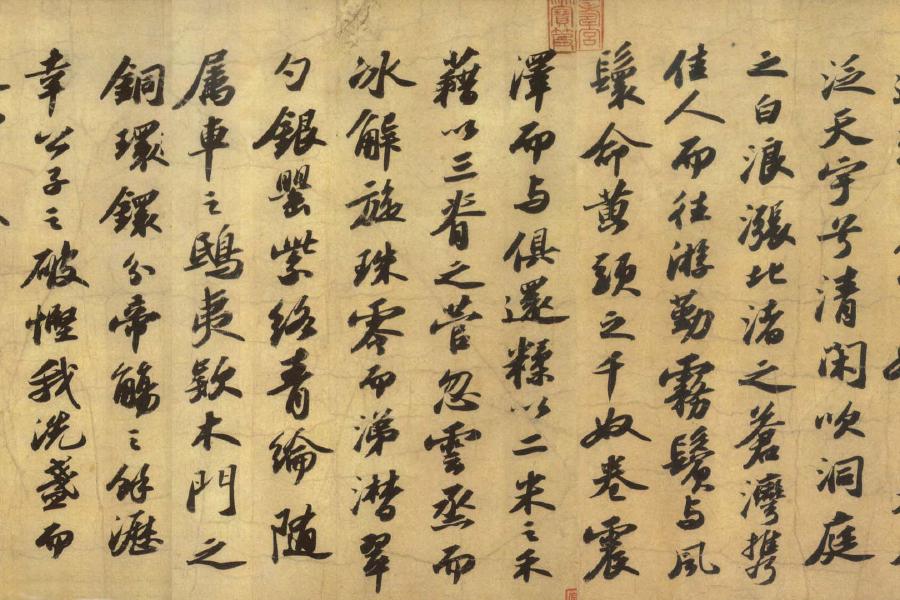 泛天宇兮清閑吹洞庭
之白浪漲北渚之蒼灣携
佳人而往游勤霧鬢与風
鬟命黄頭之千奴卷震
澤而与俱還糅以二米之禾
藉以三脊之菅忽雲烝而
冰解旋珠零而涕潸翠
勺銀罌紫絡青綸随
属車之鴟夷款木門之
銅環鐶分帝觴之餘瀝
幸公子之破慳我洗盞而